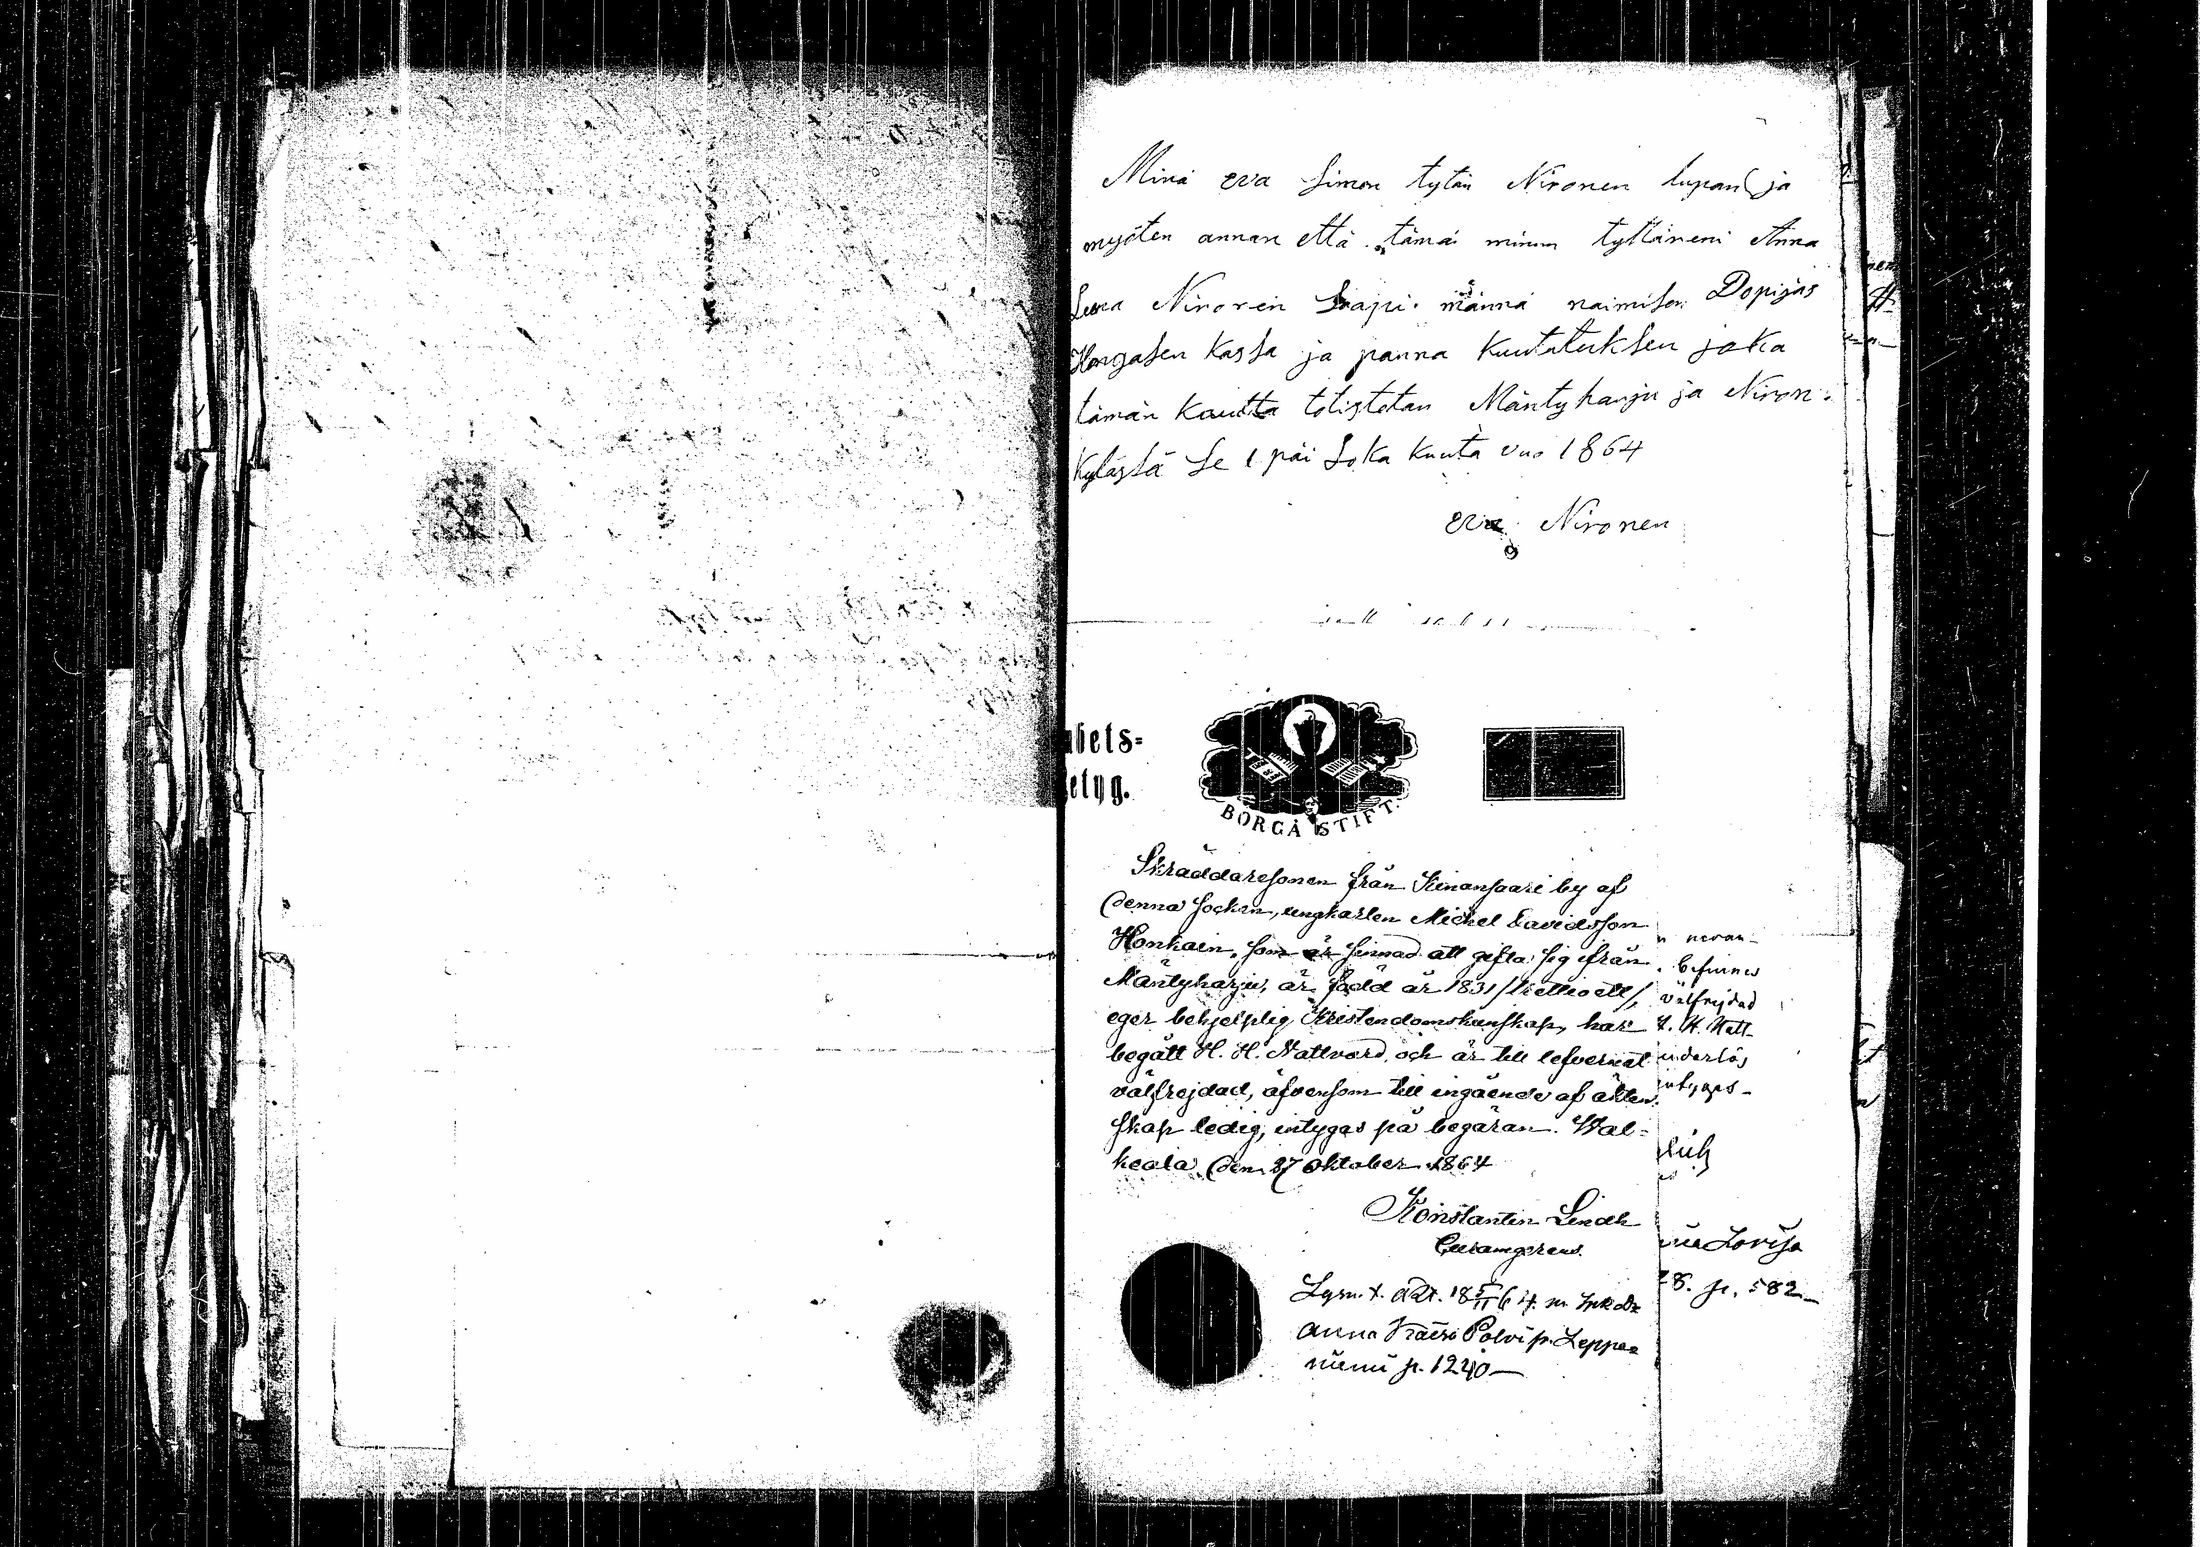 Minä eva Simon tytär Nironen lupan ja
myöten annan että tämä minun tyttäreni Anna
Lena Nironen Saapi männä naimisen Dopijas
Hongasen kassa ja panna kuulutuksen joka
tämän kautta totistetan Mäntyharju ja Niron:
kylästä Se 1 päi Loka kuuta vuo 1864
eva Nironen
abets=
etyg.
BORGÅ STIFT.
Skräddaresonen från Kinansaari by af
denna socken, ungkarlen Michel Davidsson
Honkain, som är sinnad att gifta sig ifrån
Mäntyharju, är född år 1831 /trettioett/,
eger behjelplig Kristendomskunskap, har
begått H. H. Nattvard, och är till lefvernet
välfrejdad, äfvensom till ingående af äkten-
skap ledig, intygas på begäran. Wal=
keala, den 27 Oktober 1864
Konstantin Lindh
n nevan-
befinnes
välfrejdad
H. H. Natt-
nderlås
ntygas-
Lovisa
28. p. 582
Anna Polvi p. Leppä
niemi p. 1240